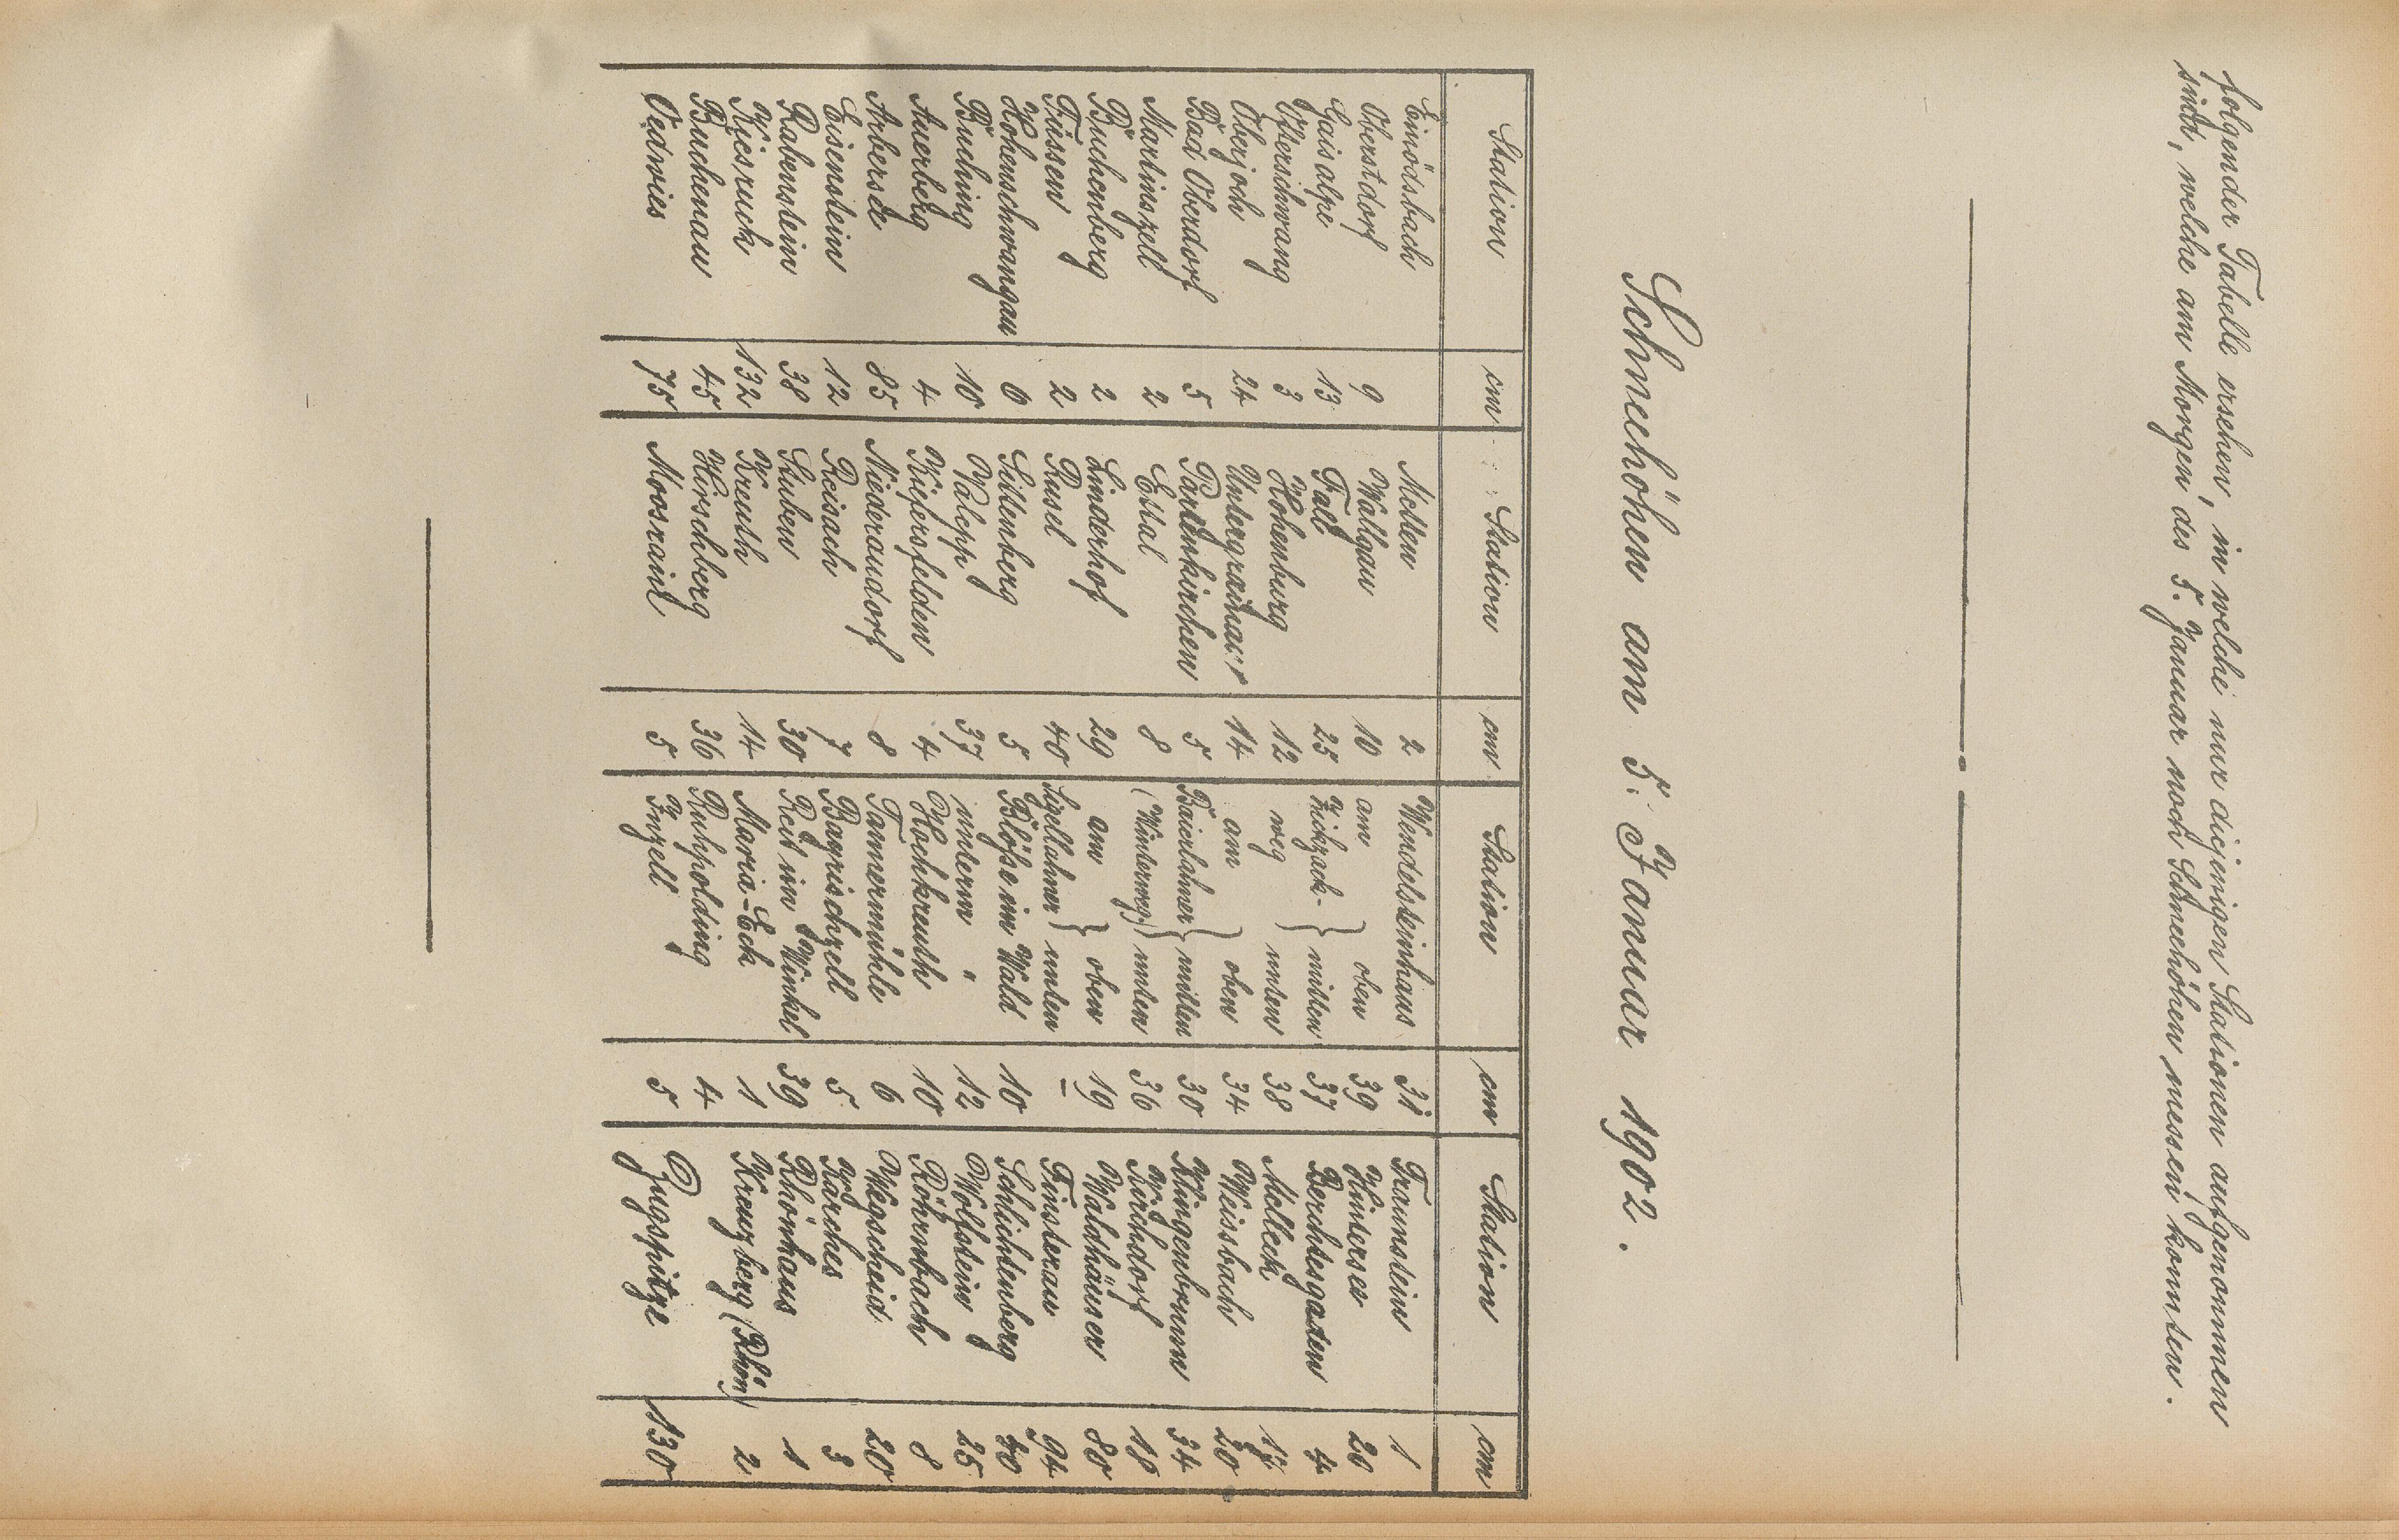 folgender Tabelle ersehen, in welche nur diejenigen Stationen aufgenommen
sind, welche am Morgen des 5. Januar noch Schneehöhen messen konnten.
Schneehöhen am 5. Januar 1902.
Station cm Station cm Station cm Station cm
Einödsbach Metten 2 Wendelsteinhaus 31 Traunstein 1
Oberstdorf 9 Wallgau 10 am } oben 39 Hintersee 26
Gaisalpe 13 Fall 25 Zickzack- } mitten 37 Berchtesgaden 4
Ofterschwang 3 Hohenburg 12 weg } unten 38 Melleck
Oberjoch 24 Untergrainau 14 am } oben 34 Weissbach 20
Bad Oberdorf 5 Partenkirchen 5 Baierlahner } mitten 30 Klingenbrunn 34
Martinszell 2 Ettal 8 (Winterweg) } unten 36 Kirchdorf 18
Buchenberg 2 Linderhof 29 am } oben 19 Waldhäuser 80
Füssen 2 Rusel 40 unten – Finsterau 94
Hohenschwangau 6 Sittenberg 5 Blöße im Wald 10 Schlichtenberg 40
Buching 10 Valepp 37 unterm " 12 Wolfstein 25
Auerberg 4 Kiefersfelden 4 Hochkreuth 10 Röhrnbach 8
Arbersee 85 Niederaudorf 8 Tannermühle 6 Wegscheid 20
Eisenstein 12 Reisach 7 Bayrischzell 5 Karches 3
Rabenstein 38 Stuben 30 Reit im Winkel 39 Rhönhaus 1
Kiesruck 132 Kreuth 14 Maria-Eck 1 Kreuzberg (Rhön) 2
Buchenau 45 Hirschberg 36 Ruhpolding 4
Oedwies 75 Moosrain 5 Inzell 5 Zugspitze 130